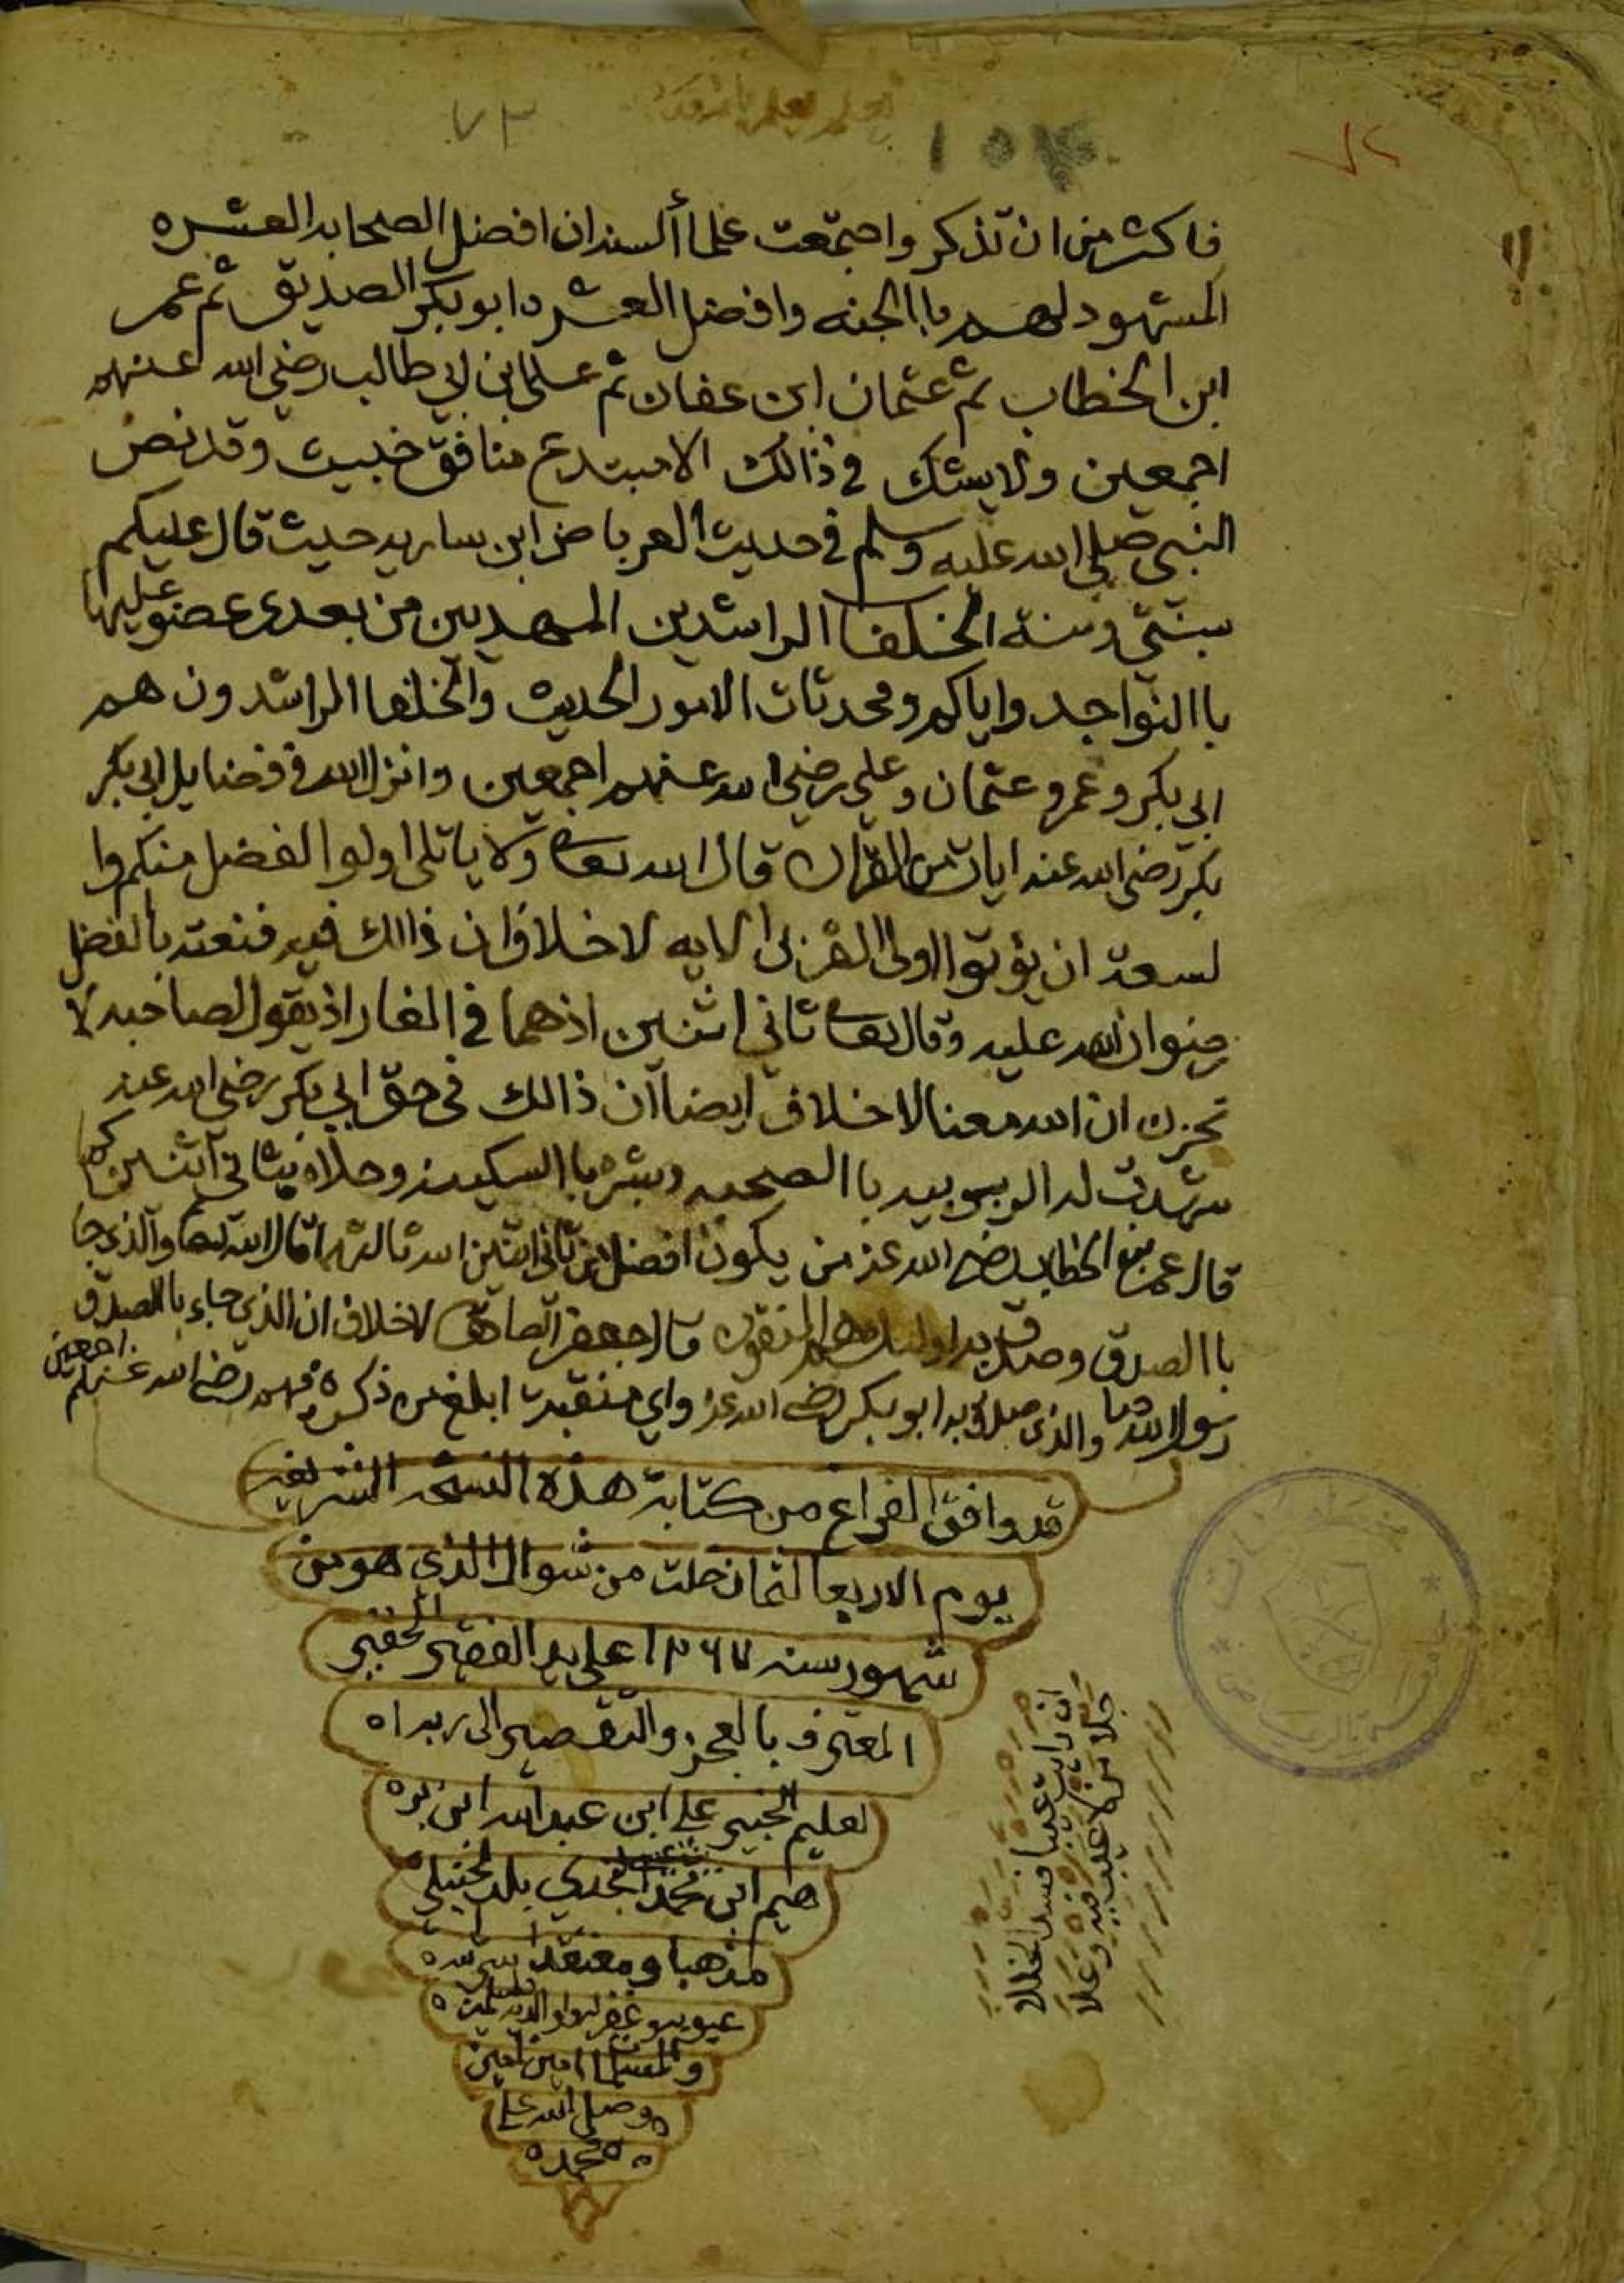 ٧٣
١٥٤
٧٢
فاكثر من ان تذكر واجتمعت علماأ السنه ان افضل الصحابه العشره
المشهود لهم باالجنه وافضل العشره ابو بكر الصديق ثم عمر
ابن الخطاب ثم عثمان ابن عفان ثم علي ابن ابي طالب رضي الله عنهم
اجمعين ولا يشك في ذالك الا مبتدع منافق خبيث وقد نص
النبي صلي الله عليه وسلم في حديث العرباض ابن ساريه حيث قال عليكم
بسنتي وسنة الخلفا الراشدين المهديين من بعدي عضو عليها
باالنواجد واياكم ومحدثات الامور الحديث والخلفا الراشدون هم
ابي بكر وعمر وعثمان وعلي رضي الله عنهم اجمعين وانزل الله في فضايل ابي بكر
بكر رضي الله عنه ايات من القران قال الله تعا ولا ياتلي اولوا الفضل منكم وا
لسعة ان يؤتوا اولي القربى الايه لا خلاف ان ذالك فيه فنعته بالفضل
رضوان الله عليه وقال تعا ثاني اثنين اذهما في الغار اذ يقول لصاحبه لا
تحزن ان الله معنا لا خلاف ايضا ان ذالك في حق ابي بكر رضي الله عنه
شهدت له الربوبيه باالصحبه وبشر باالسكينه وحلاه بثاني اثنين كما
قال عمر بن الخطاب رضي الله عنه من يكون افضل من ثاني اثنين الله ثالثهما قال الله تعا والذي جا
باالصدق وصدق به اولئك هم المتقون قال جعفر الصادق لا خلاف ان الذي جاء باالصدق
رسول الله والذي صدق به ابو بكر رضي الله عنه واي منقبة ابلغ من ذكره فيهم رضي الله عنهم اجمعين
قد وافق الفراغ من كتابة هذه النسخه الشريفه
يوم الاربعا لثمان خلت من شوال الذي هو من
شهور سنه ١٢٦٧ علي يد الفقير الحقير
المعترف بالعجز والتقصير الى ربه ا
لعليم الخبير علي ابن عبد الله ابن ابره
هيم ابن محمد النجدي بلد الحنبلي
مذهبا ومعتقدا ستر الله
عيوبه وغفر له ولوالديه
والمسلمين امين امين
وصلى الله علي
محمد
ان رايت عيبا فسد الخللا
جلا من لا عيب فيه وعلا